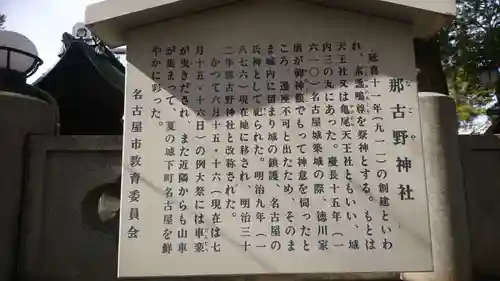 那古野神社
なごや
延喜十一年（九一一）の創建といわ
れ、素盞嗚尊を祭神とする。もとは
天王社又は亀尾天王社ともいい、城
内三の丸にあった。慶長十五年（一
六一〇）名古屋城築城の際、徳川家
康が御神籤によって神意を伺ったと
ころ、遷座不可と出たため、そのま
ま城内に留まり城の鎮護、名古屋の
氏神として祀られた。明治九年（一
八七六）現在地に移され、明治三十
二年那古野神社と改称された。
かつて六月十五・十六日（現在は七
月十五・十六日）の例大祭には車楽
が曳きだされ、また近隣からも山車
が集まって、夏の城下町名古屋を鮮
やかに彩った。
名古屋市教育委員会